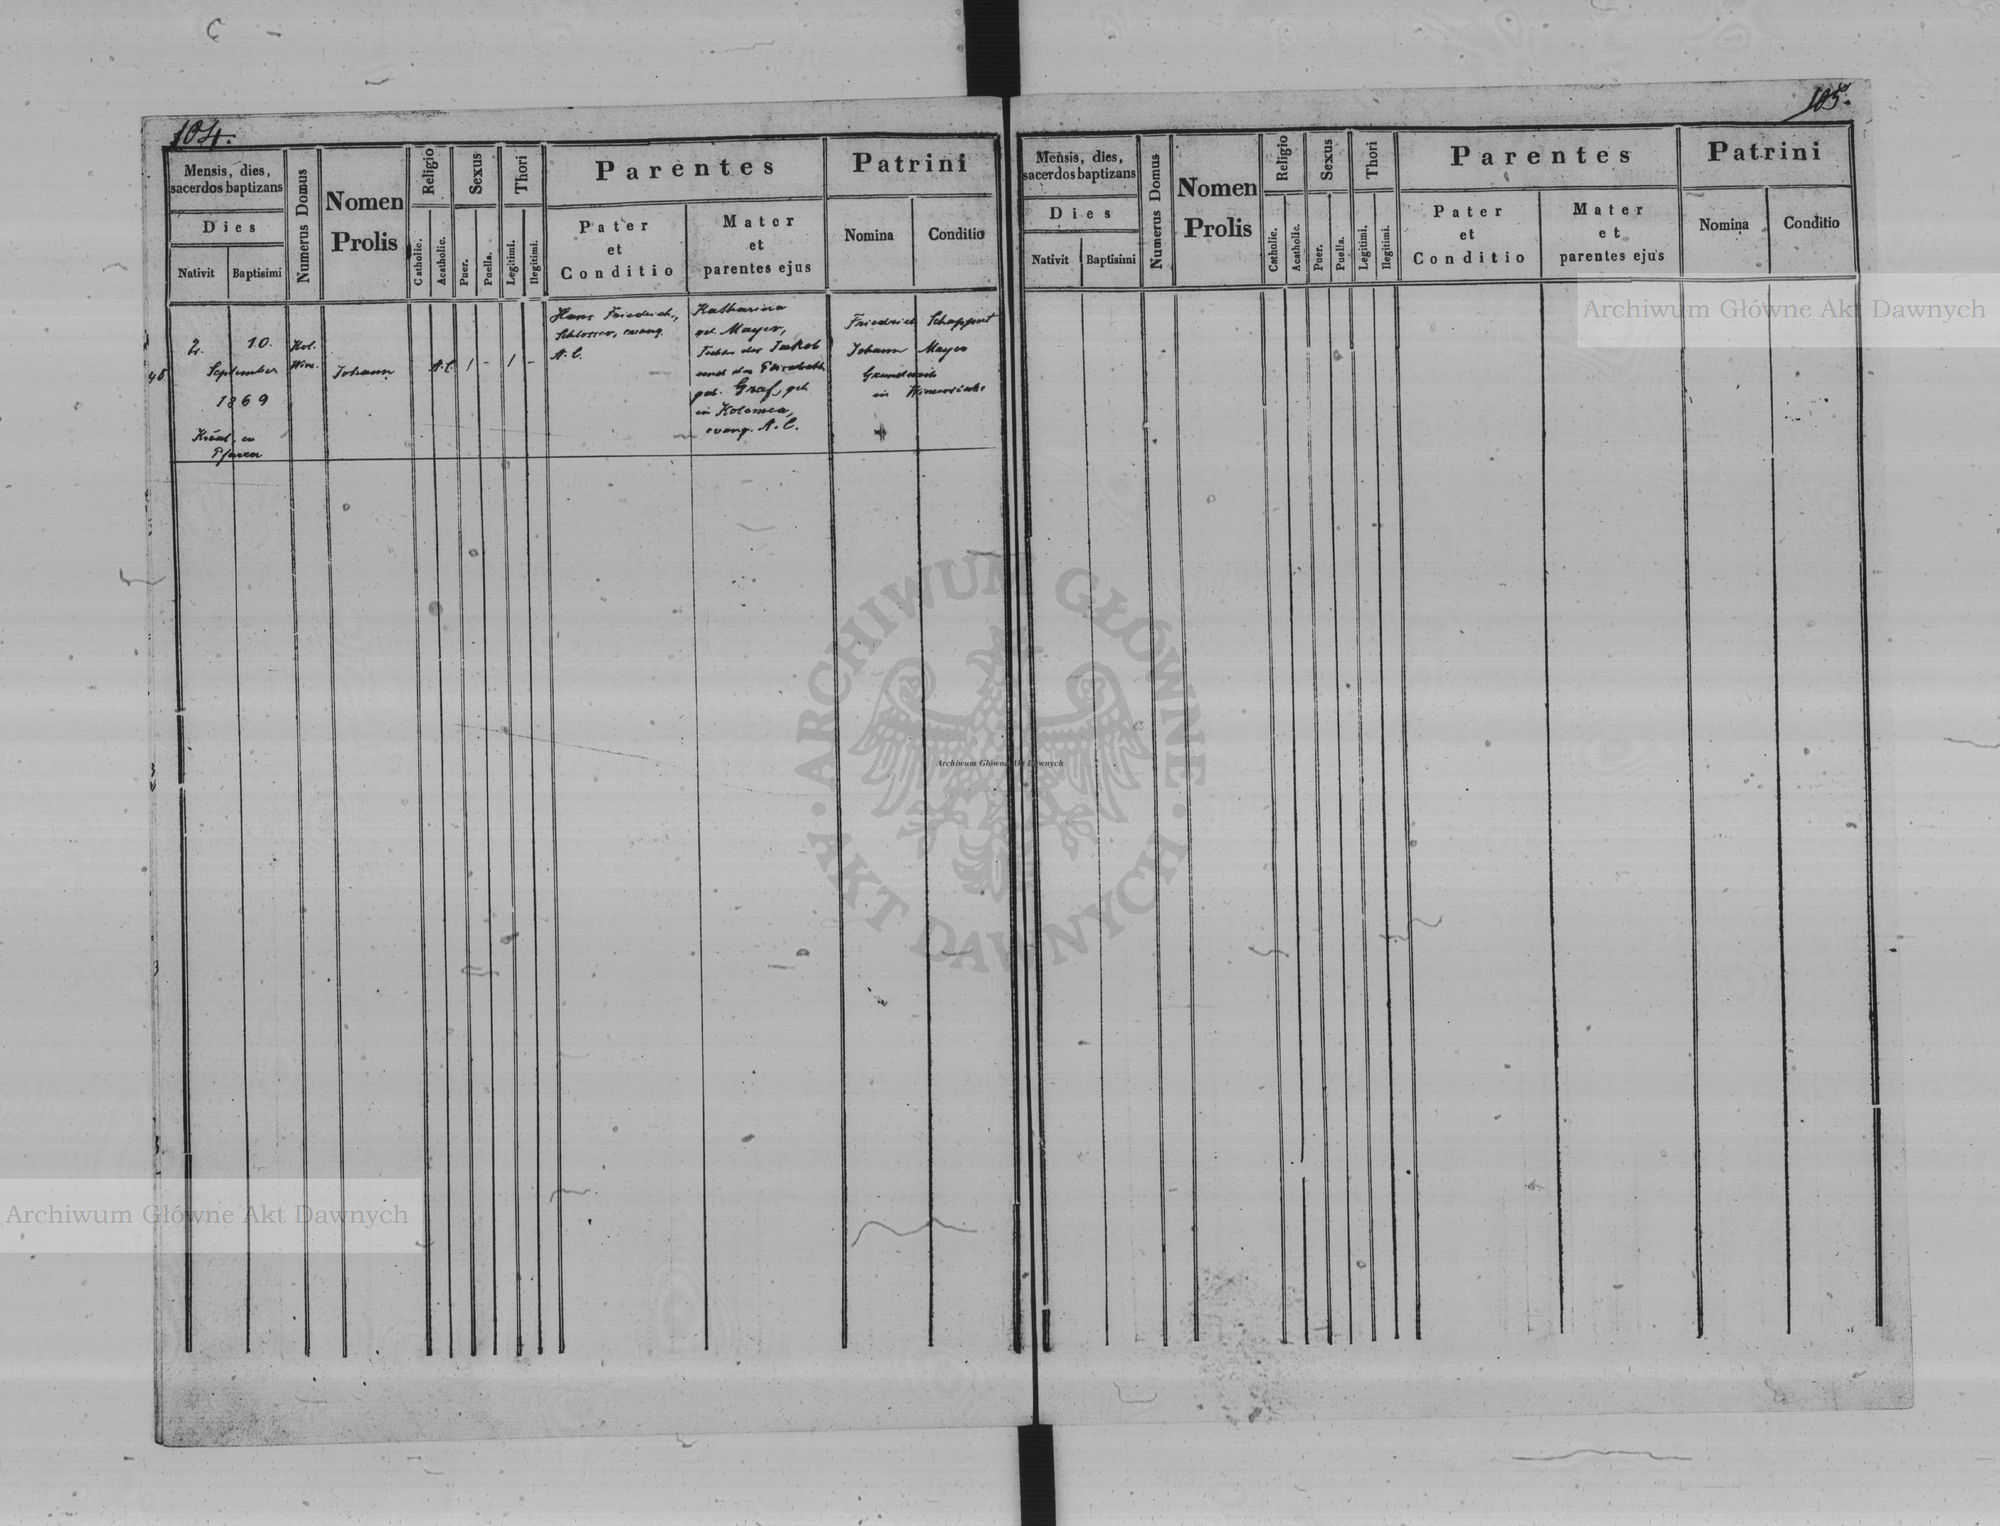 104.
Mensis, dies,
sacerdos baptizans
Dies
Nativit
Baptisimi
Numerus Domus
Nomen
Prolis
Religio
Catholic.
Acatholic.
Sexus
Puer.
Puella.
Thori
Legitimi.
Illegitimi.
Parentes
Pater
et
Conditio
Mater
et
parentes ejus
Patrini
Nomina
Conditio
2.
10.
September
1869
Pfarrer
Kol.
Johann
A.C.
1 -
1 -
Hans Friedrich,
Schlosser, evang.
A. C.
Katharina
geb. Mayer,
Tochter des Jakob
und der Elisabeth
geb. Graf, geb.
in Kolomea,
evang. A. C.
Friedrich Schappert
Johann Mayer
in
105.
Mensis, dies,
sacerdos baptizans
Dies
Nativit
Baptisimi
Numerus Domus
Nomen
Prolis
Religio
Catholic.
Acatholic.
Sexus
Puer.
Puella.
Thori
Legitimi.
Illegitimi.
Parentes
Pater
et
Conditio
Mater
et
parentes ejus
Patrini
Nomina
Conditio
Archiwum Główne Akt Dawnych
ARCHIWUM GŁÓWNE
AKT DAWNYCH
Archiwum Główne Akt Dawnych
Archiwum Główne Akt Dawnych